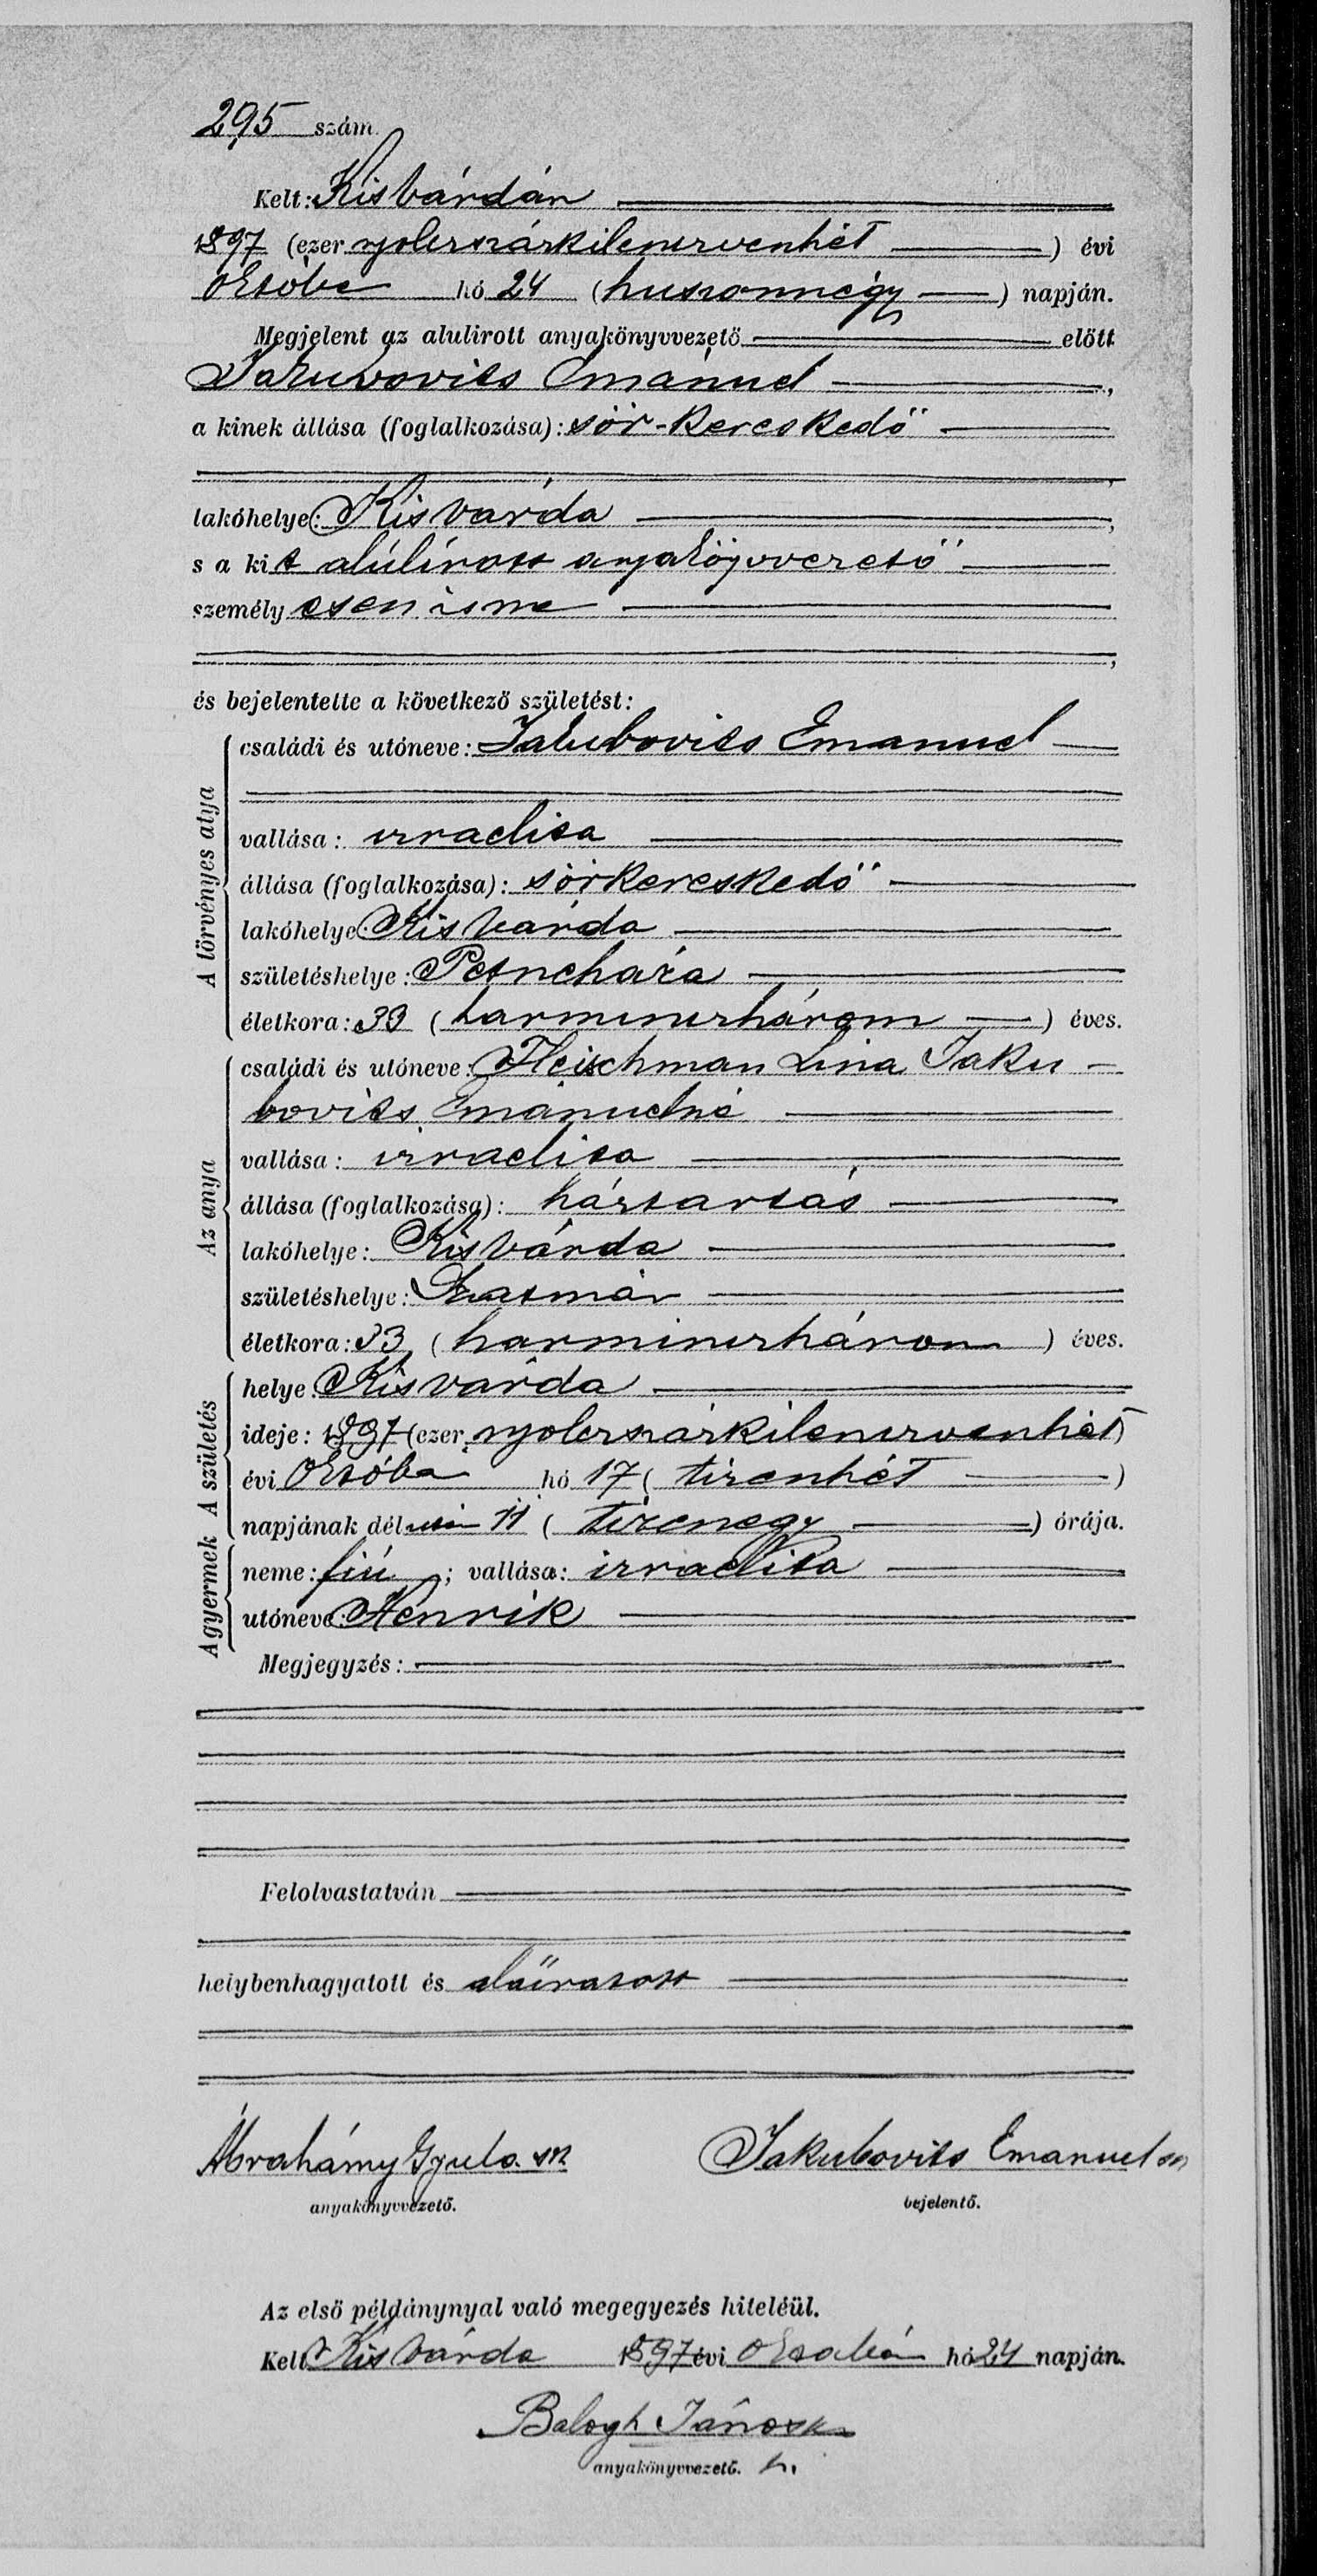 295 szám.
Kelt: Kisvárdán
1897 (ezer nyolczszázkilenczvenhét) évi
október hó 24 (huszonnégy) napján.
Megjelent az alulirott anyakönyvvezető előtt
Jakubovits Emánuel,
a kinek állása (foglalkozása): sör-kereskedő
lakóhelye: Kisvárda,
s a kit alúlírott anyakönyvvezető
személyesen ismer
és bejelentette a következő születést:
A törvényes atya
családi és utóneve: Jakubovits Emanuel
vallása: izraelita
állása (foglalkozása): sörkereskedő
lakóhelye: Kisvárda
születéshelye: Petneháza
életkora: 33 (harminczhárom) éves.
Az anya
családi és utóneve: Fleischman Lina Jaku-
bovits Emánuelné
vallása: izraelita
állása (foglalkozása): háztartás
lakóhelye: Kisvárda
születéshelye: Szatmár
életkora: 33 (harminczhárom) éves.
A születés
helye: Kisvárda
ideje: 1897 (ezer nyolczszázkilenczvenhét)
évi október hó 17 (tizenhét)
napjának dél 11 (tizenegy) órája.
A gyermek
neme: fiú; vallása: izraelita
utóneve: Henrik
Megjegyzés:
Felolvastatván
helybenhagyatott és aláíratott
Ábrahámy Gyula sk Jakubovits Emanuel sk
anyakönyvvezető. bejelentő.
Az első példánynyal való megegyezés hiteléül.
Kelt Kisvárda 1897 évi október hó 24 napján.
Balogh János
anyakönyvvezető. h.